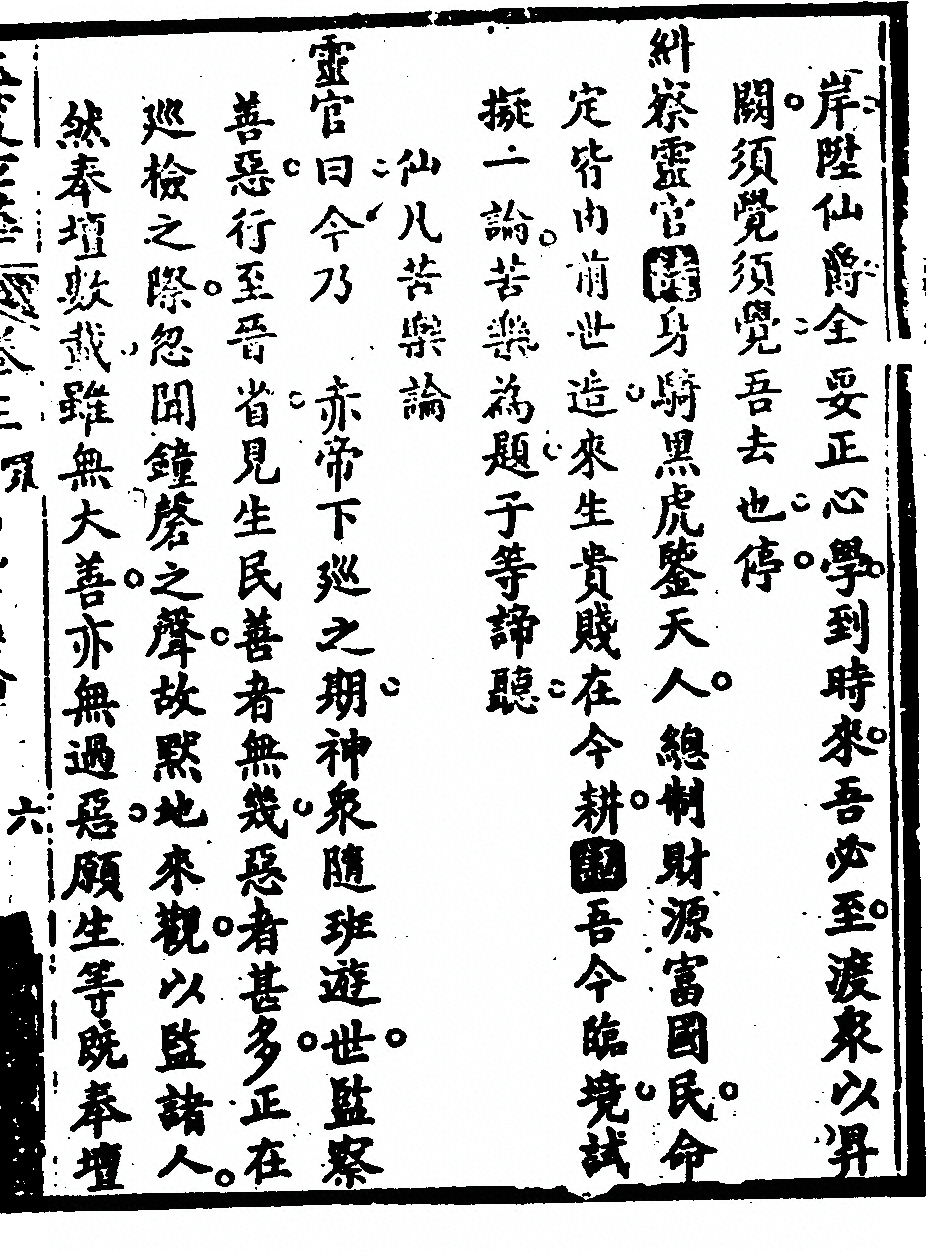 岸陞仙爵全要正心學到時來吾必至渡衆以昇
闕須覺須覺吾去也停
糾察靈官身騎黑虎鑒天人總制財源富國民命
定皆由前世造來生貴賤在今耕吾今臨境試
擬一論苦樂為題于等諦聽
仙凡苦樂論
靈官曰今乃 赤帝下巡之期神衆隨班遊世監察
善惡行至晉省見生民善者無幾惡者甚多正在
巡檢之際忽聞鐘磬之聲故默地來觀以監諸人
然奉壇數載雖無大善亦無過惡願生等既奉壇
卷三
六